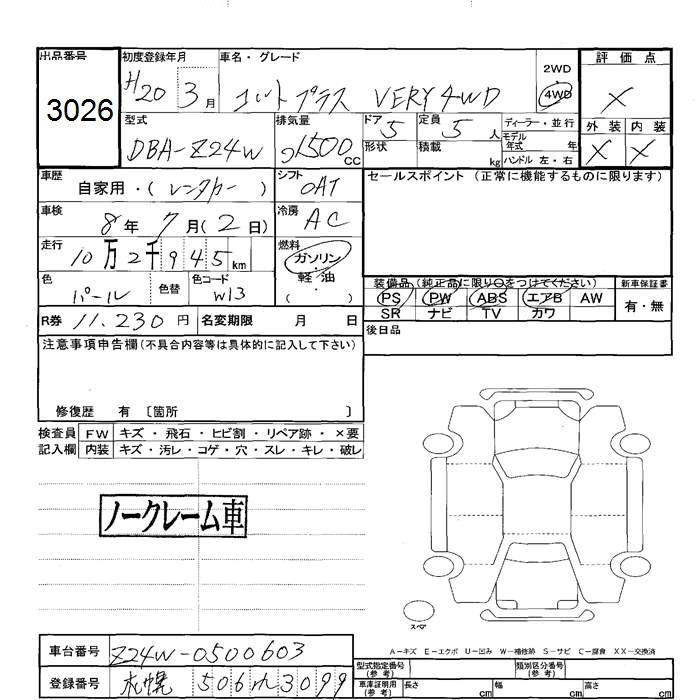 出品番号 初度登録年月 車名・グレード 2WD 評価点
3026 H20 3月 コルトプラス VERY 4WD 4WD X
型式 排気量 ドア 5 定員 5人 ディーラー・並行 外装 内装
DBA-Z24W 1500CC 形状 積載 kg モデル年式 年 X X
ハンドル 左・右
車歴 自家用・(レンタカー) シフト OAT セールスポイント (正常に機能するものに限ります)
車検 8年 7月(2日) 冷房 AC
走行 10万2千945km 燃料 ガソリン
軽・油
( )
色 パール 色替 色コード W13 装備品 (純正品に限り○をつけてください) 新車保証書
PS PW ABS エアB AW 有・無
SR ナビ TV カワ
R券 11.230円 名変期限 月 日 後日品
注意事項申告欄(不具合内容等は具体的に記入して下さい)
修復歴 有 〔箇所 〕
検査員 FW キズ・飛石・ヒビ割・リペア跡・×要
記入欄 内装 キズ・汚レ・コゲ・穴・スレ・キレ・破レ
ノークレーム車
スペア
A-キズ E-エクボ U-凹み W-補修跡 S-サビ C-腐食 XX-交換済
車台番号 Z24W-0500603 型式指定番号(参考) 類別区分番号(参考)
登録番号 札幌 506 3099 車庫証明用(参考) 長さ cm 幅 cm 高さ cm